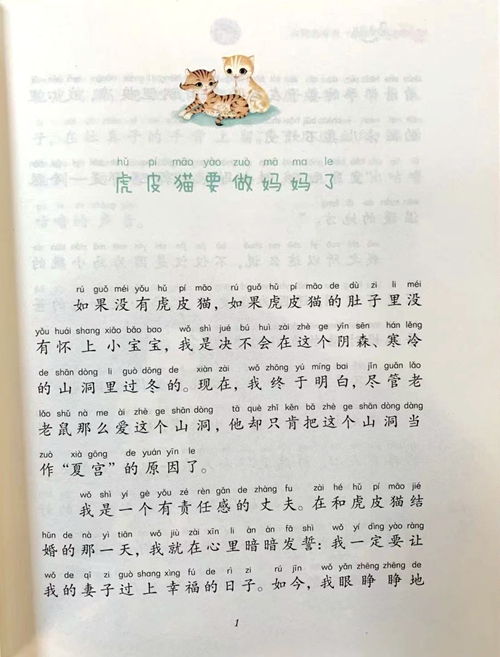 hǔ pí māo yào zuò mā ma le
虎皮猫要做妈妈了
rú guǒ méi yǒu hǔ pí māo rú guǒ hǔ pí māo de dù zi li méi
如果没有虎皮猫，如果虎皮猫的肚子里没
yǒu huái shang xiǎo bǎo bao wǒ shì jué bú huì zài zhè ge yīn sēn hán lěng
有怀上小宝宝，我是决不会在这个阴森、寒冷
de shān dòng li guò dōng de xiàn zài wǒ zhōng yú míng bai jǐn guǎn lǎo
的山洞里过冬的。现在，我终于明白，尽管老
lǎo shǔ nà me ài zhè ge shān dòng tā què zhǐ kěn bǎ zhè ge shān dòng dàng
老鼠那么爱这个山洞，他却只肯把这个山洞当
zuò xià gōng de yuán yīn le
作“夏宫”的原因了。
wǒ shì yí gè yǒu zé rèn gǎn de zhàng fu zài hé hǔ pí māo jié
我是一个有责任感的丈夫。在和虎皮猫结
hūn de nà yì tiān wǒ jiù zài xīn li àn àn fā shì wǒ yí dìng yào ràng
婚的那一天，我就在心里暗暗发誓：我一定要让
wǒ de qī zi guò shang xìng fú de rì zi rú jīn wǒ yǎn zhēng zhēng de
我的妻子过上幸福的日子。如今，我眼睁睁地
1